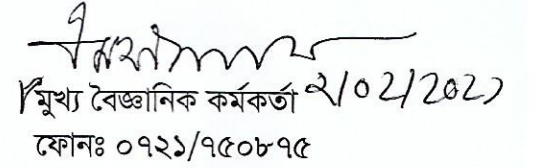 মুখ্য বৈজ্ঞানিক কর্মকর্তা ২/০২/202১
ফোনঃ ০৭২১/৭৫০৮৭৫